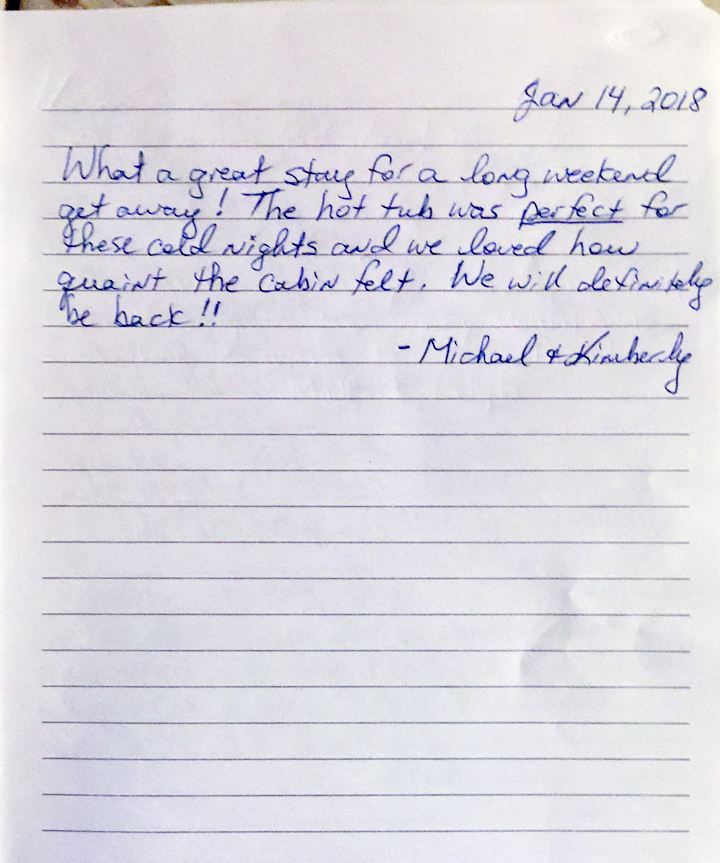 Jan 14, 2018
What a great stay for a long weekend
get away! The hot tub was perfect for
these cold nights and we loved how
quaint the cabin felt. We will definitely
be back!!
- Michael & Kimberly